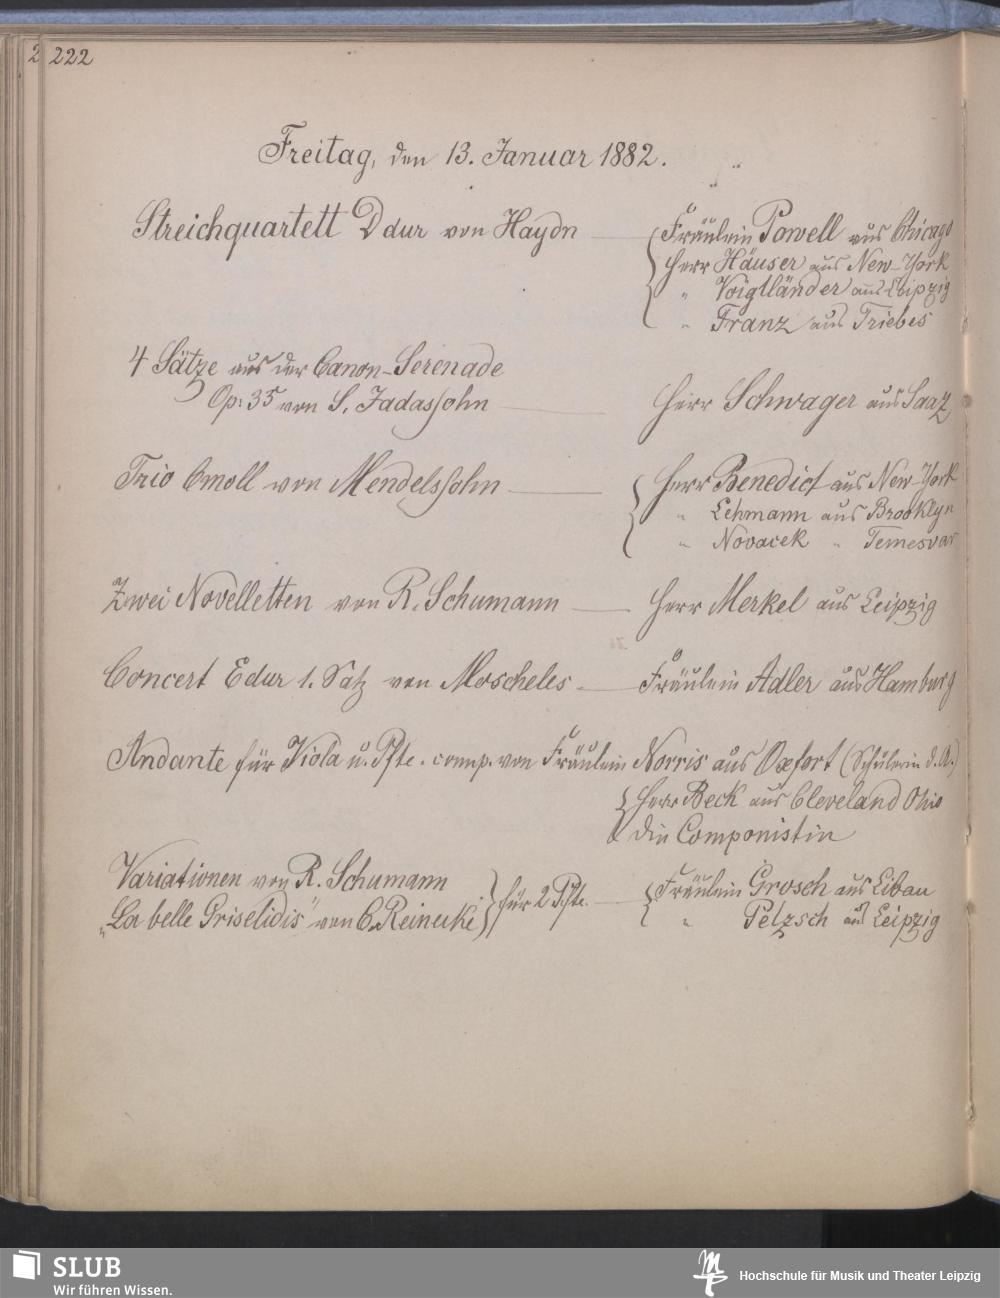 222
Freitag, den 13. Januar 1882.
Streichquartett D dur von Haydn
Fräulein Powell aus Chicago
Herr Häuser aus New-York
" Voigtländer aus Leipzig
" Franz aus Triebes
4 Sätze aus der Canon-Serenade
Op: 35 von S. Jadassohn
Herr Schwager aus Saaz
Trio Cmoll von Mendelssohn
Herr Benedict aus New-York
" Lehmann aus Brooklyn
" Novacek " Temesvar
Zwei Novelletten von R. Schumann
Herr Merkel aus Leipzig
Concert Edur 1. Satz von Moscheles
Fräulein Adler aus Hamburg
Andante für Viola u. Pfte. comp. von Fräulein Norris aus Oxfort (Schülerin d. A.)
Herr Beck aus Cleveland Ohio
die Componistin
Variationen von R. Schumann
„La belle Griselidis" von C. Reinecke
für 2 Pfte.
Fräulein Grosch aus Libau
" Petzsch aus Leipzig
SLUB
Wir führen Wissen.
Hochschule für Musik und Theater Leipzig